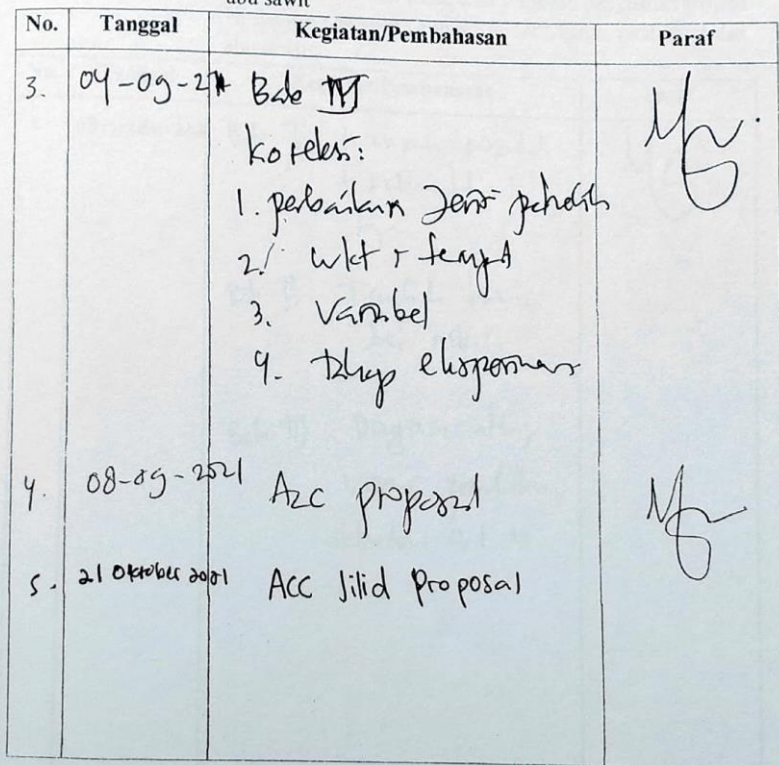 abu sawit
No. Tanggal Kegiatan/Pembahasan Paraf
3. 04-09-21 Bab III
Koreksi:
1. perbaikan Jenis penelitian
2. wkt + tempat
3. Variabel
4. tahap eksperimen
4. 08-09-2021 Acc proposal
5. 21 Oktober 2021 Acc Jilid Proposal